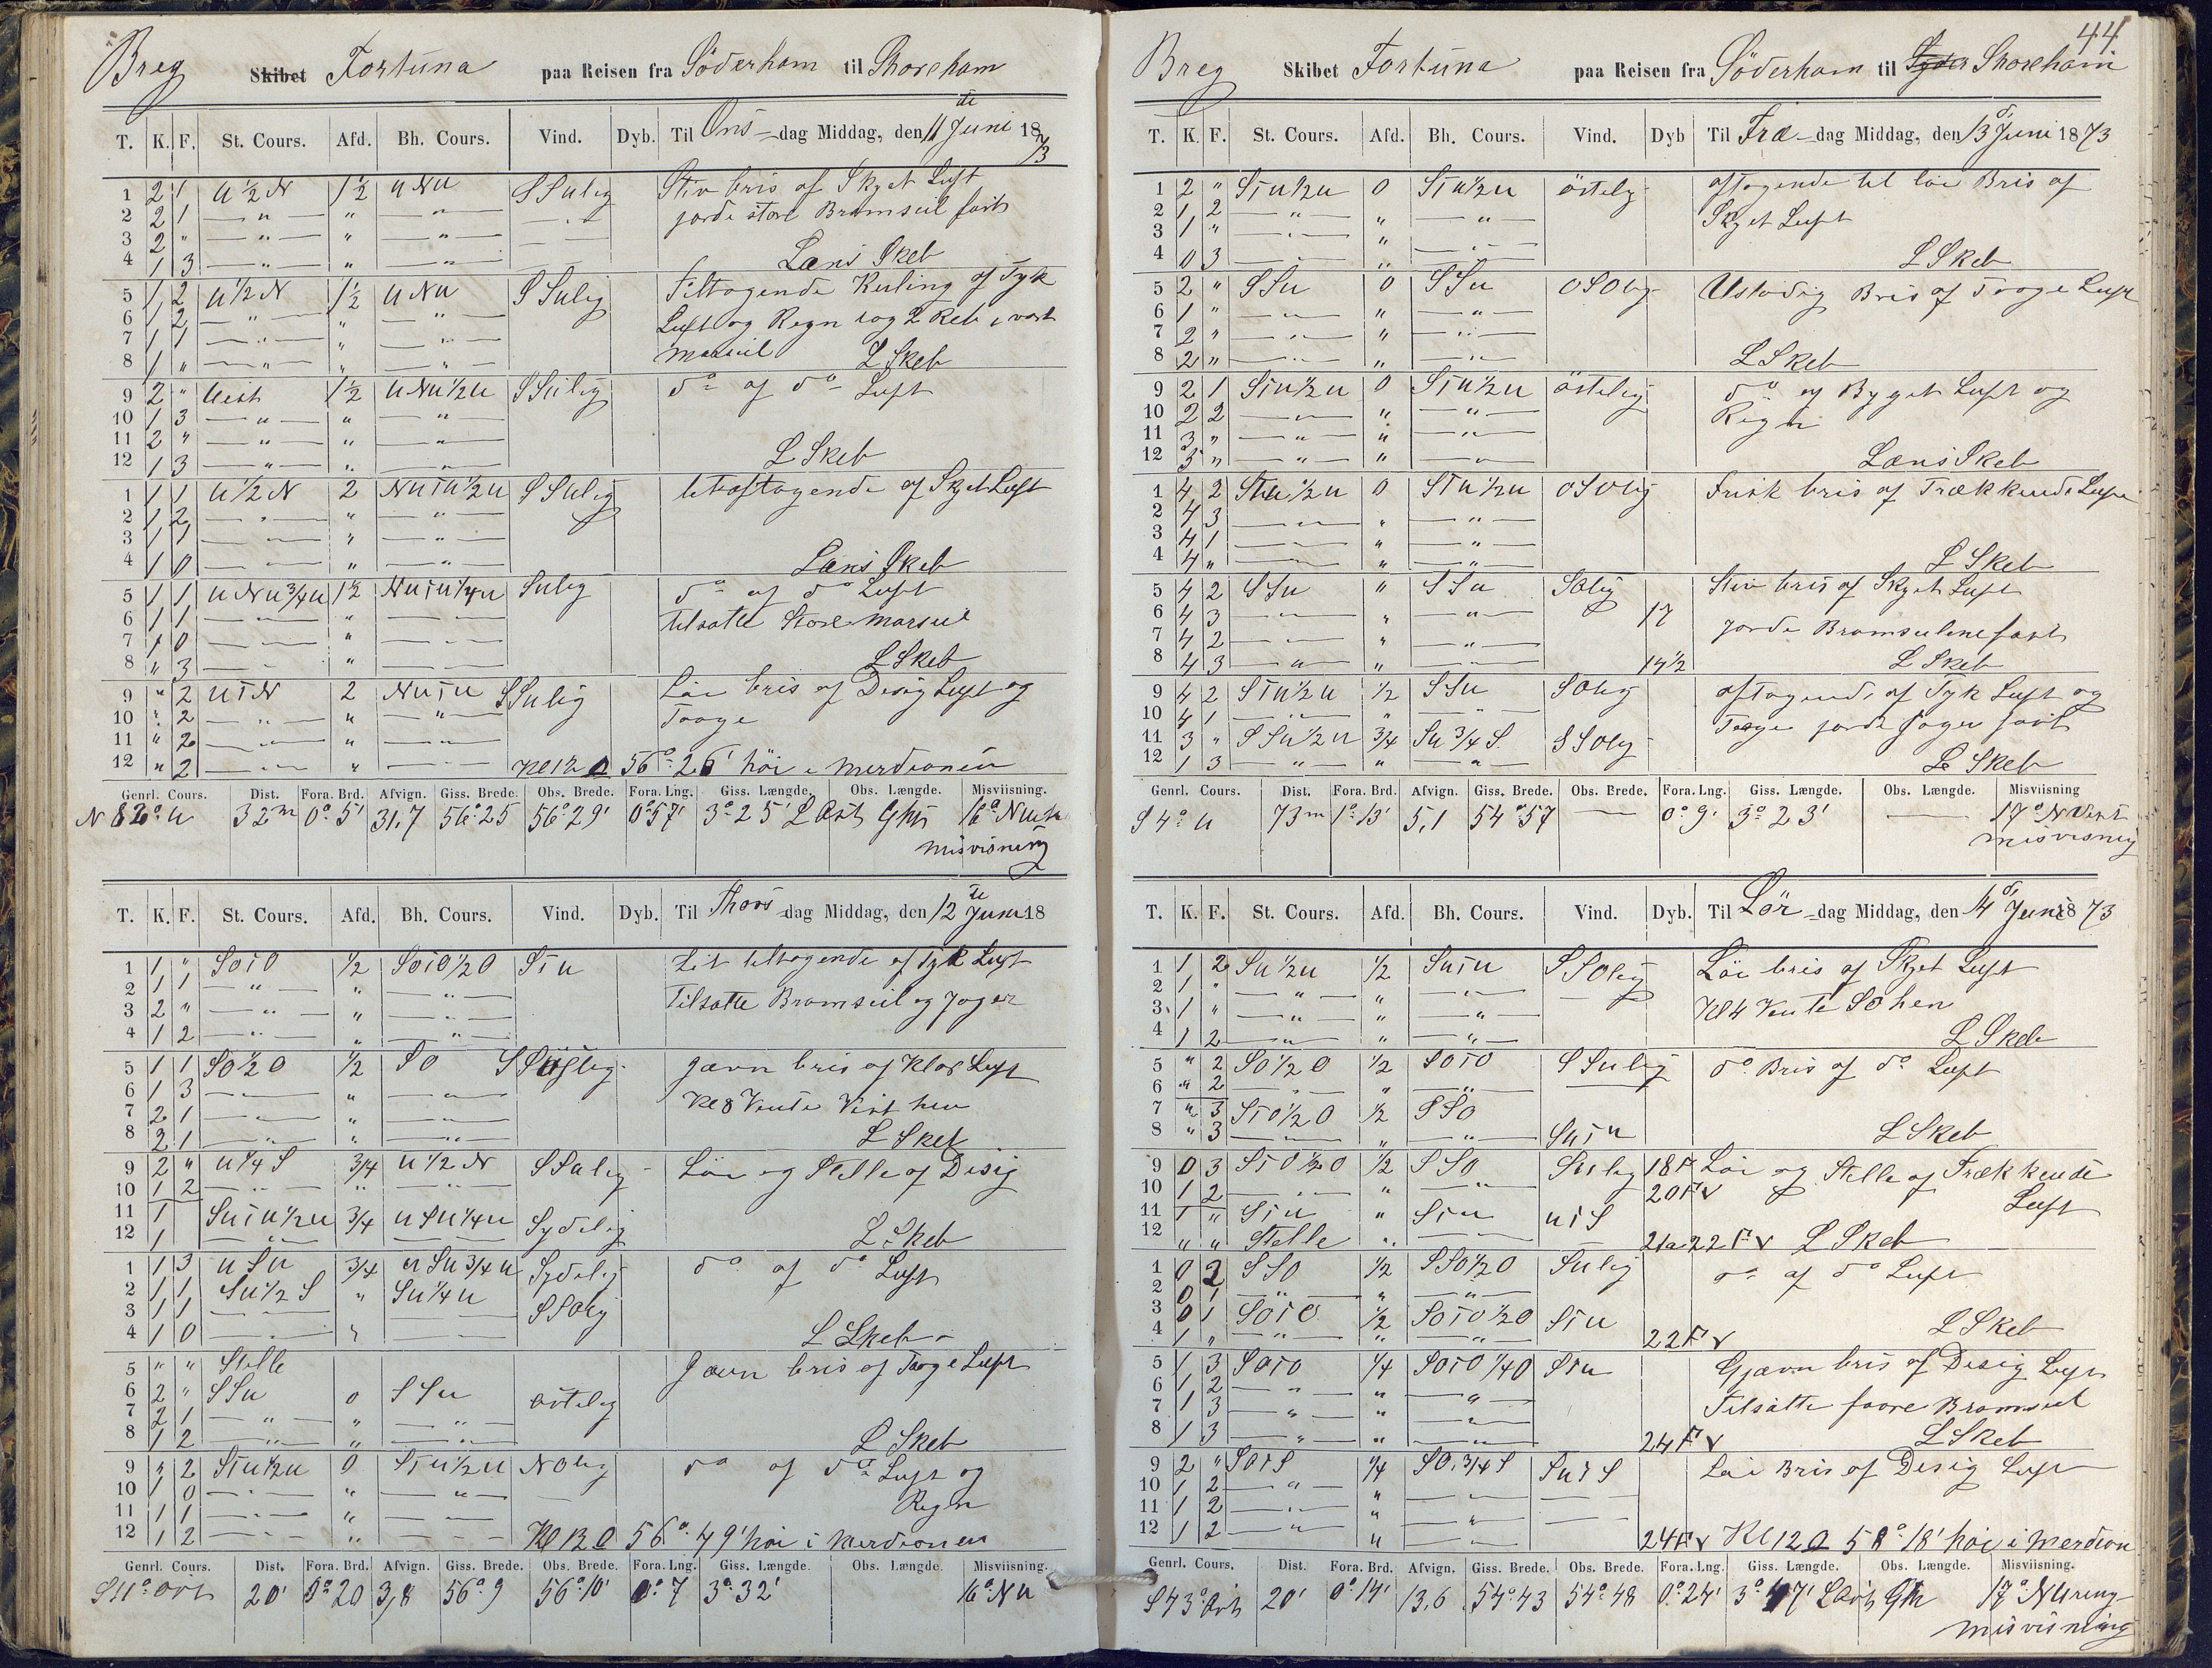 Breg Skibet Fortuna paa Reisen fra Söderham til Shoreham
T. K. F. St. Cours. Afd. Bh. Cours. Vind. Dyb. Til Ons-dag Middag, den 11 de Juni 1873
1 2 1 U 1/2 N 1 1/2 U N U S S U lig Stiv bris af Skyet Luft
2 2 1 — " — " — " — jorde store Bramseil fast
3 2 " — " — " — " —
4 1 3 — " — " — " — Læns Skeb
5 1 2 U 1/2 N 1 1/2 U N U S S U lig Tiltagende Kuling af Tyk
6 1 2 — " — " — " — Luft og Regn tog 2 Reb i vort
7 1 1 — " — " — " —
8 1 " — " — " — " — marseil L Skeb
9 2 " Uest 1 1/2 U N U 1/2 U S S U lig do af do Luft
10 1 3 — " — " — " —
11 2 " — " — " — " —
12 1 3 — " — " — " — L Skeb
1 1 1 U 1/2 N 2 N U T U 1/2 U S S U lig let aftagende af Skyet Luft
2 1 2 — " — " — " —
3 1 1 — " — " — " —
4 1 0 — " — " — " — Læns Skeb
5 1 1 U N U 3/4 U 1 1/2 N U T U 1/4 U S U lig do af do Luft
6 1 1 — " — " — " — tilsatte Store Marseil
7 1 0 — " — " — " —
8 " 3 — " — " — " — L Skeb
9 " 2 U T N 2 N U T U S S U lig Löi bris af Disig Luft og
10 " 2 — " — " — " — Taage
11 " 2 — " — " — " —
12 " 2 — " — " — " — Kl 12 56° 26' höi i merdionen
Genrl. Cours. Dist. Fora. Brd. Afvign. Giss. Brede. Obs. Brede. Fora. Lng. Giss. Længde. Obs. Længde. Misviisning
N 82° U 32 m 0° 5' 31,7 56° 25 56° 29' 0° 57' 3° 25' L Ost Gr 16° N
misvisning
T. K. F. St. Cours. Afd. Bh. Cours. Vind. Dyb. Til Thors-dag Middag, den 12 te Juni 18
1 1 " S O T O 1/2 S O T O 1/2 O S T U Lit tiltagende af Tyk Luft
2 1 1 — " — " — " —
3 2 " — " — " — " — Tilsatte Bramseil og Jager
4 1 2 — " — " — " —
5 1 1 S O 1/2 O 1/2 S O Jævn bris af Klar Luft
6 1 3 — " — " — " — Kl 8 Vente Vest hen
7 2 1 — " — " — " —
8 2 1 — " — " — " — L Skeb
9 2 " U 1/4 S 3/4 U 1/2 N S S U lig Löi og Stelle af Disig
10 1 2 — " — " — " —
11 1 S U T U 1/2 U 3/4 U S U 1/4 U Sydelig
12 1 — " — — " — L Skeb
1 1 3 U S U 3/4 U S U 3/4 U Sydelig do af do Luft
2 1 1 S U 1/2 S " S U 1/4 U
3 1 1 — " — — " — S S O lig
4 1 0 — " — " — " — L Skeb
5 " " Stelle Jævn bris af Taage Luft
6 2 " S S U 0 S S U östelig
7 2 1 — " — " — " —
8 1 2 — " — " — " — L Skeb
9 3 2 S T U 1/2 U 0 S T U 1/2 U N O lig do af do Luft og
10 1 0 — " — " — " — Regn
11 1 1 — " — " — " —
12 1 2 — " — " — " — Kl 12 56° 49' höi i merdionen
Genrl. Cours. Dist. Fora. Brd. Afvign. Giss. Brede. Obs. Brede. Fora. Lng. Giss. Længde. Obs. Længde. Misviisning.
S 11° Ost 20' 0° 20 3,8 56° 9 56° 10' 0° 7 3° 32' 16° N U
44
Breg Skibet Fortuna paa Reisen fra Söderham til Shoreham
T. K. F. St. Cours. Afd. Bh. Cours. Vind. Dyb Til Fre-dag Middag, den 13 d Juni 1873
1 2 " S T U 1/2 U 0 S T U 1/2 U östelig aftagende til löi Bris af
2 1 2 — " — " — " — Skyet Luft
3 1 " — " — " — " —
4 0 3 — " — " — " — L Skeb
5 2 " S S U 0 S S U O S O lig Ustadig Bris af Taage Luft
6 1 " — " — " — " —
7 2 " — " — " — " —
8 2 " — " — " — " — L Skeb
9 2 1 S T U 1/2 U 0 S T U 1/2 U östelig do af Byget Luft og
10 2 2 — " — " — " — Regn
11 3 " — " — " — " —
12 3 " — " — " — " — Læns Skeb
1 4 2 S T U 1/2 U 0 S T U 1/2 U O S O lig Frisk bris af Trækkende Luft
2 4 3 — " — " — " —
3 4 1 — " — " — " —
4 4 " — " — " — " — L Skeb
5 4 2 S S U " S S U S O lig Stiv bris af Skyet Luft
6 4 3 — " — " — " — 17
7 4 2 — " — " — " — jorde Bramseilene fast
8 4 3 — " — " — " — 14 1/2 L Skeb
9 4 2 S T U 1/2 U 1/2 S S U S O lig aftagende af Tyk Luft og
10 4 1 — " — " — " — Taage jorde Jager fast
11 3 " S S U 1/2 U 3/4 S U 3/4 S. S S O lig
12 1 3 — " — " — " — L Skeb
Genrl. Cours. Dist. Fora. Brd. Afvign. Giss. Brede. Obs. Brede. Fora. Lng. Giss. Længde. Obs. Længde. Misviisning
S 4° U 73 m 1° 13' 5,1 54° 57 — 0° 9' 3° 23' — 17° N Vest
misvisning
T. K. F. St. Cours. Afd. Bh. Cours. Vind. Dyb. Til Lör-dag Middag, den 14 d Juni 1873
1 1 2 S U 1/2 U 1/2 S U T U S S O lig Löi bris af Skyet Luft
2 1 " — " — " — " —
3 1 " — " — " — " — Kl 4 Vente S O hen
4 1 2 — " — " — " — L Skeb
5 " 2 S O 1/2 O 1/2 S O T O S S U lig do Bris af do Luft
6 " 2 — " — " — " —
7 " 3 S T O 1/2 O 1/2 S S O
8 " 3 — " — " — " — S U T U L Skeb
9 0 3 S T O 1/2 O 1/2 S S O S U lig 18 F Löi og Stelle af Trækkende
10 1 2 — " — " — " — 20 F v
11 1 " S T U " S T U U T S Luft
12 " " Stelle 21 a 22 F v L Skeb
1 0 2 S S O 1/2 S S O 1/2 O S U lig do af do Luft
2 0 1 — " — " — " —
3 0 1 S O T O 1/2 S O T O 1/2 O S T U
4 1 " — " — " — " — 22 F v L Skeb
5 1 3 S O T O 1/4 S O T O 1/4 O S T U Gjævn bris af Disig Luft
6 1 2 — " — " — " —
7 1 3 — " — " — " — Tilsatte foore Bramseil
8 1 3 — " — " — " — 24 F v L Skeb
9 2 " S O T S 1/4 S O. 3/4 S S U T S Löi Bris af Disig Luft
10 1 2 — " — " — " —
11 1 2 — " — " — " —
12 1 2 — " — " — " — 24 F v Kl 12 58° 18' höi i merdion
Genrl. Cours. Dist. Fora. Brd. Afvign. Giss. Brede. Obs. Brede. Fora. Lng. Giss. Længde. Obs. Længde. Misviisning.
S 43° Ost 20' 0° 14' 13,6 54° 43 54° 48 0° 24' 3° 47' L Ost Gr 17° N
misvisning